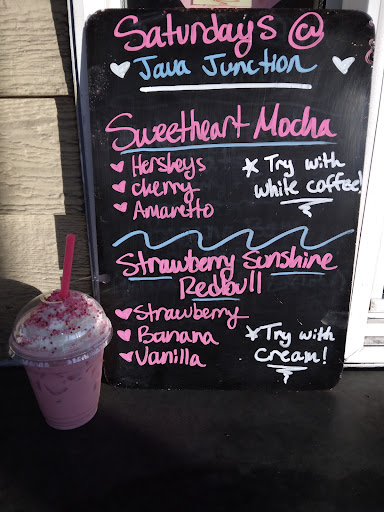 Saturdays @
Java Junction
Sweetheart Mocha
Hersheys
cherry
Amaretto
* Try with
white coffee!
Strawberry Sunshine
Redbull
Strawberry
Banana
Vanilla
* Try with
cream!